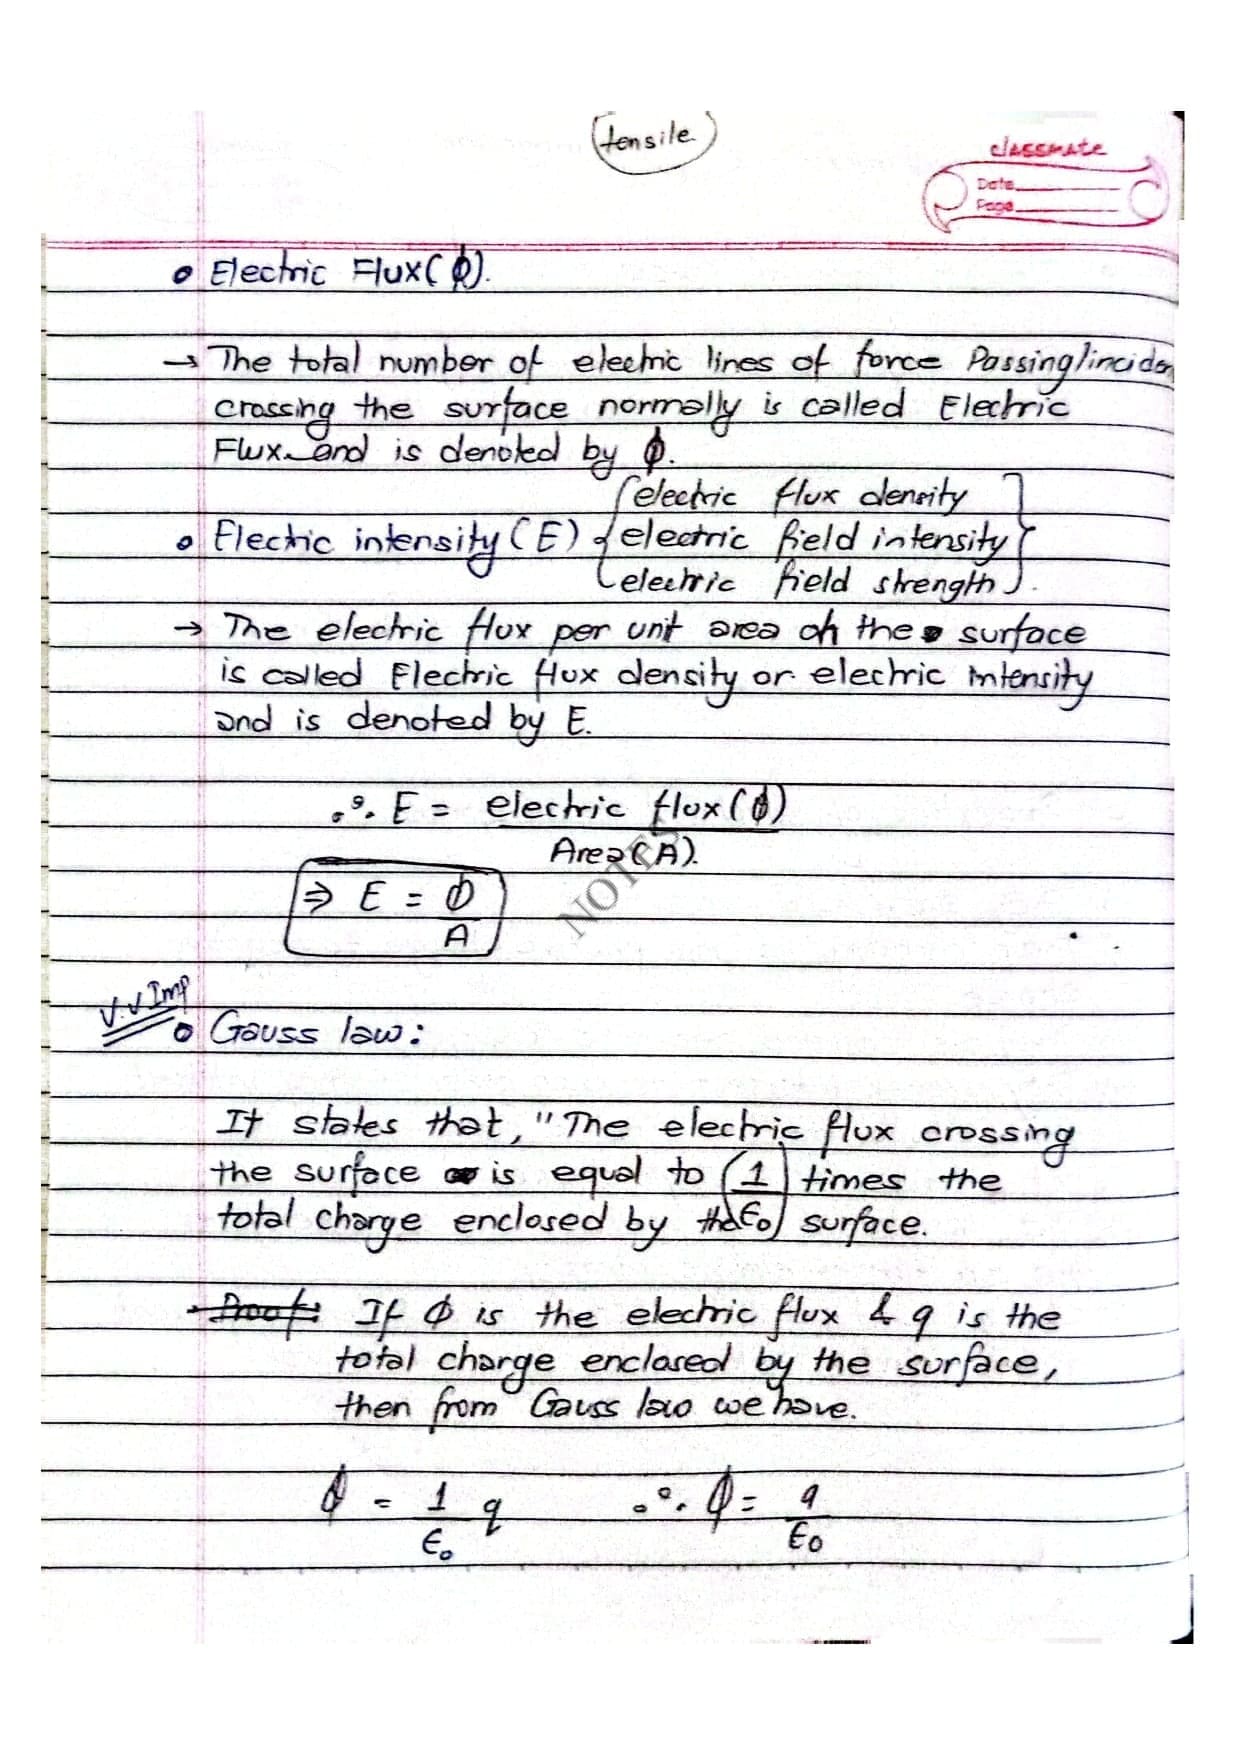 tensile
classmate
Date
Page
• Electric Flux(ϕ).
→ The total number of electric lines of force Passing/inciden
crossing the surface normally is called Electric
Flux and is denoted by ϕ.
electric flux density
• Electric intensity (E) { electric field intensity }
electric field strength
→ The electric flux per unit area oh the surface
is called Electric flux density or electric intensity
and is denoted by E.
∴ E = electric flux(ϕ)
Area(A).
⇒ E = ϕ
A
NOTES
V.V Imp
• Gauss law:
It states that, "The electric flux crossing
the surface is equal to (1/ϵ₀) times the
total charge enclosed by the surface.
Proof: If ϕ is the electric flux & q is the
total charge enclosed by the surface,
then from Gauss law we have.
ϕ = 1/ϵ₀ q ∴ ϕ = q/ϵ₀